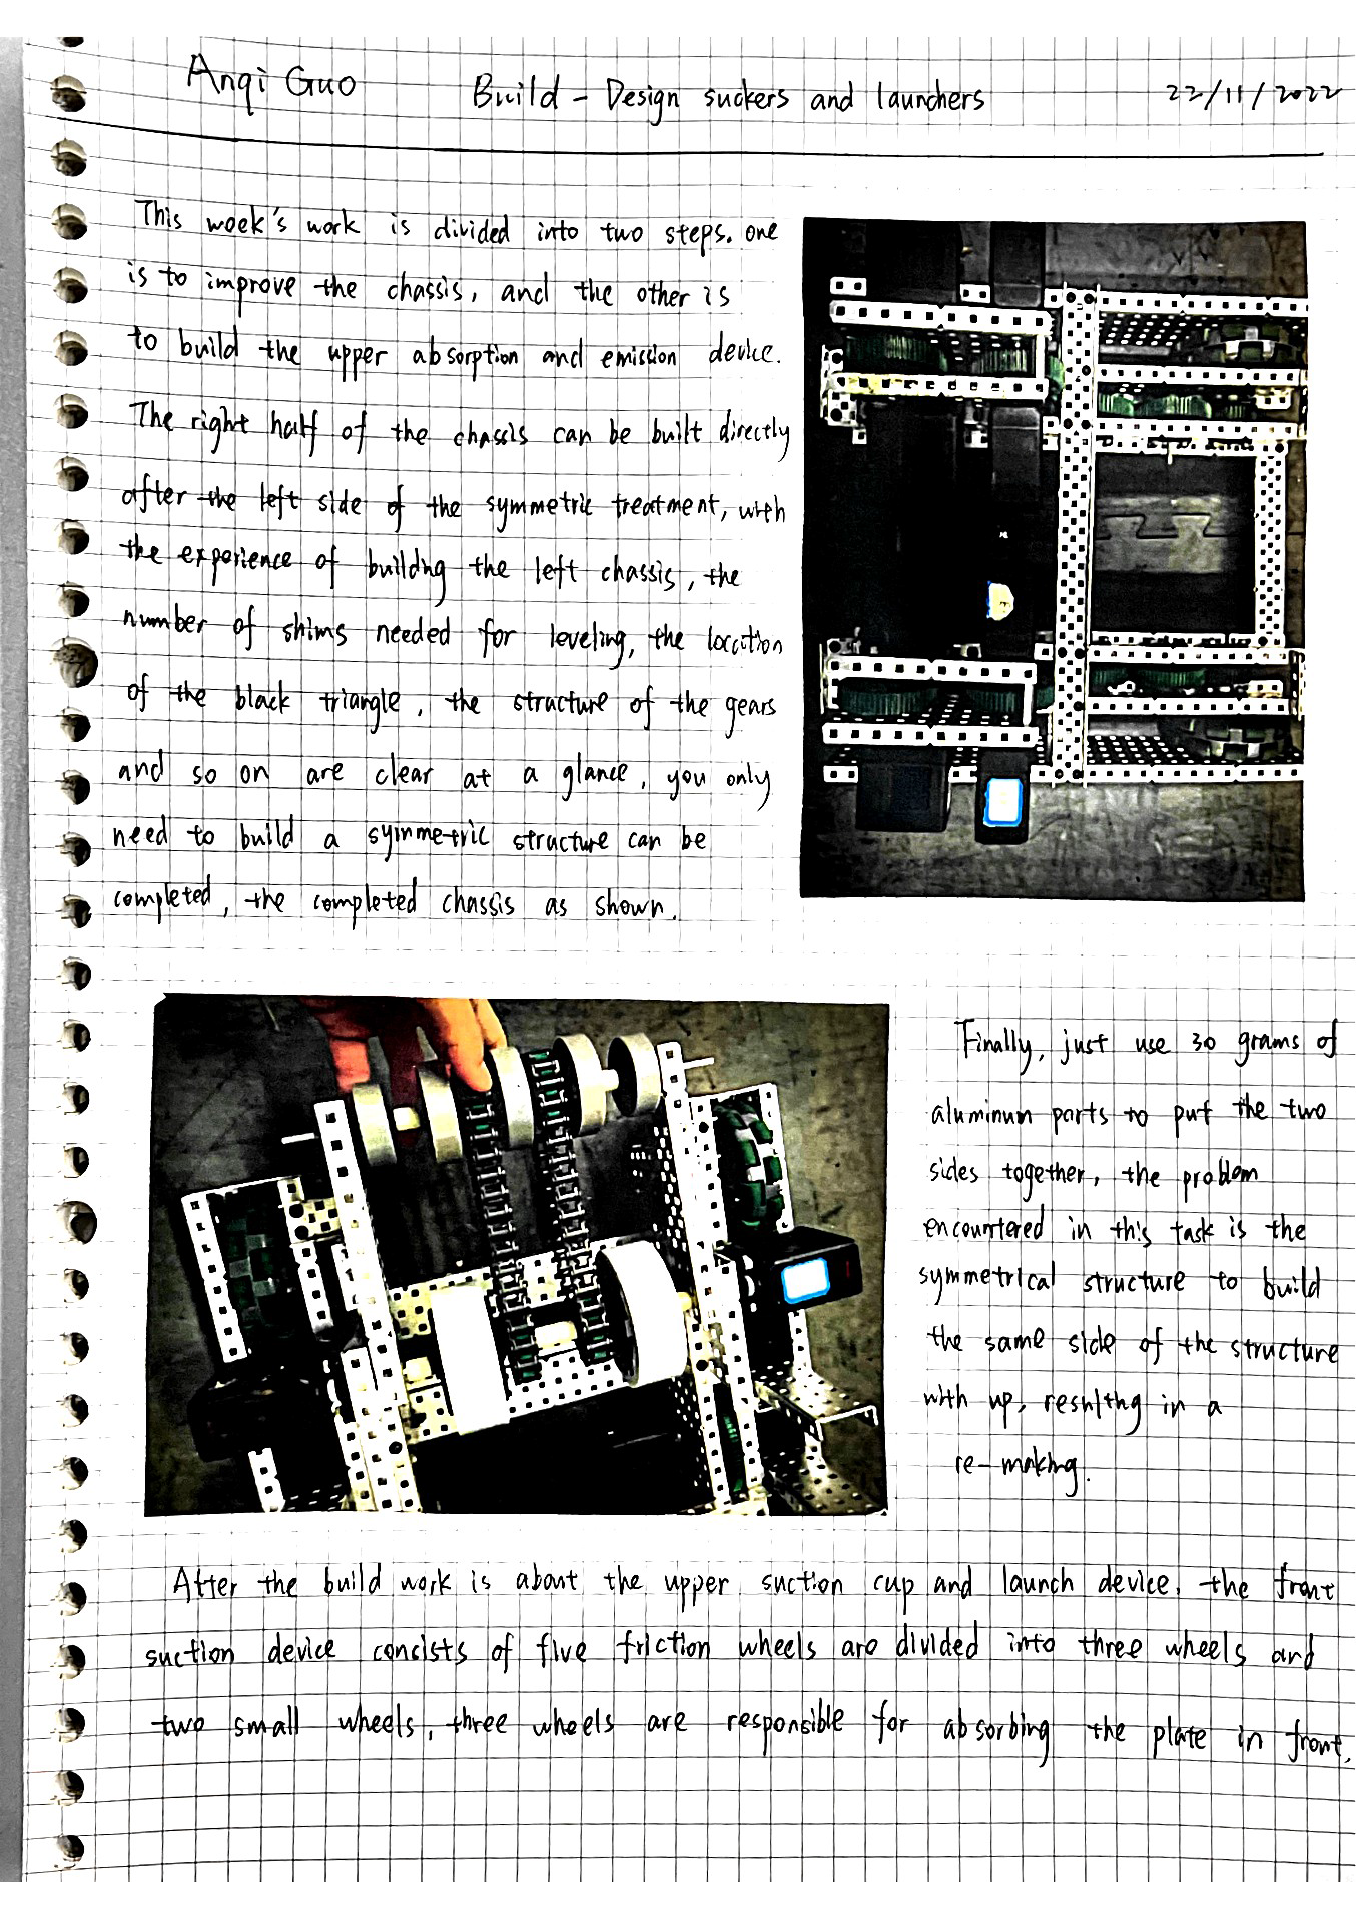 Anqi Guo
Build - Design suckers and launchers
22/11/2022
This week's work is divided into two steps. one
is to improve the chassis, and the other is
to build the upper absorption and emission device.
The right half of the chassis can be built directly
after the left side of the symmetric treatment, with
the experience of building the left chassis, the
number of shims needed for leveling, the location
of the black triangle, the structure of the gears
and so on are clear at a glance, you only
need to build a symmetric structure can be
completed, the completed chassis as shown.
Finally, just use 30 grams of
aluminum parts to put the two
sides together, the problem
encountered in this task is the
symmetrical structure to build
the same side of the structure
with up, resulting in a
re-making.
After the build work is about the upper suction cup and launch device, the front
suction device consists of five friction wheels are divided into three wheels and
two small wheels, three wheels are responsible for absorbing the plate in front.